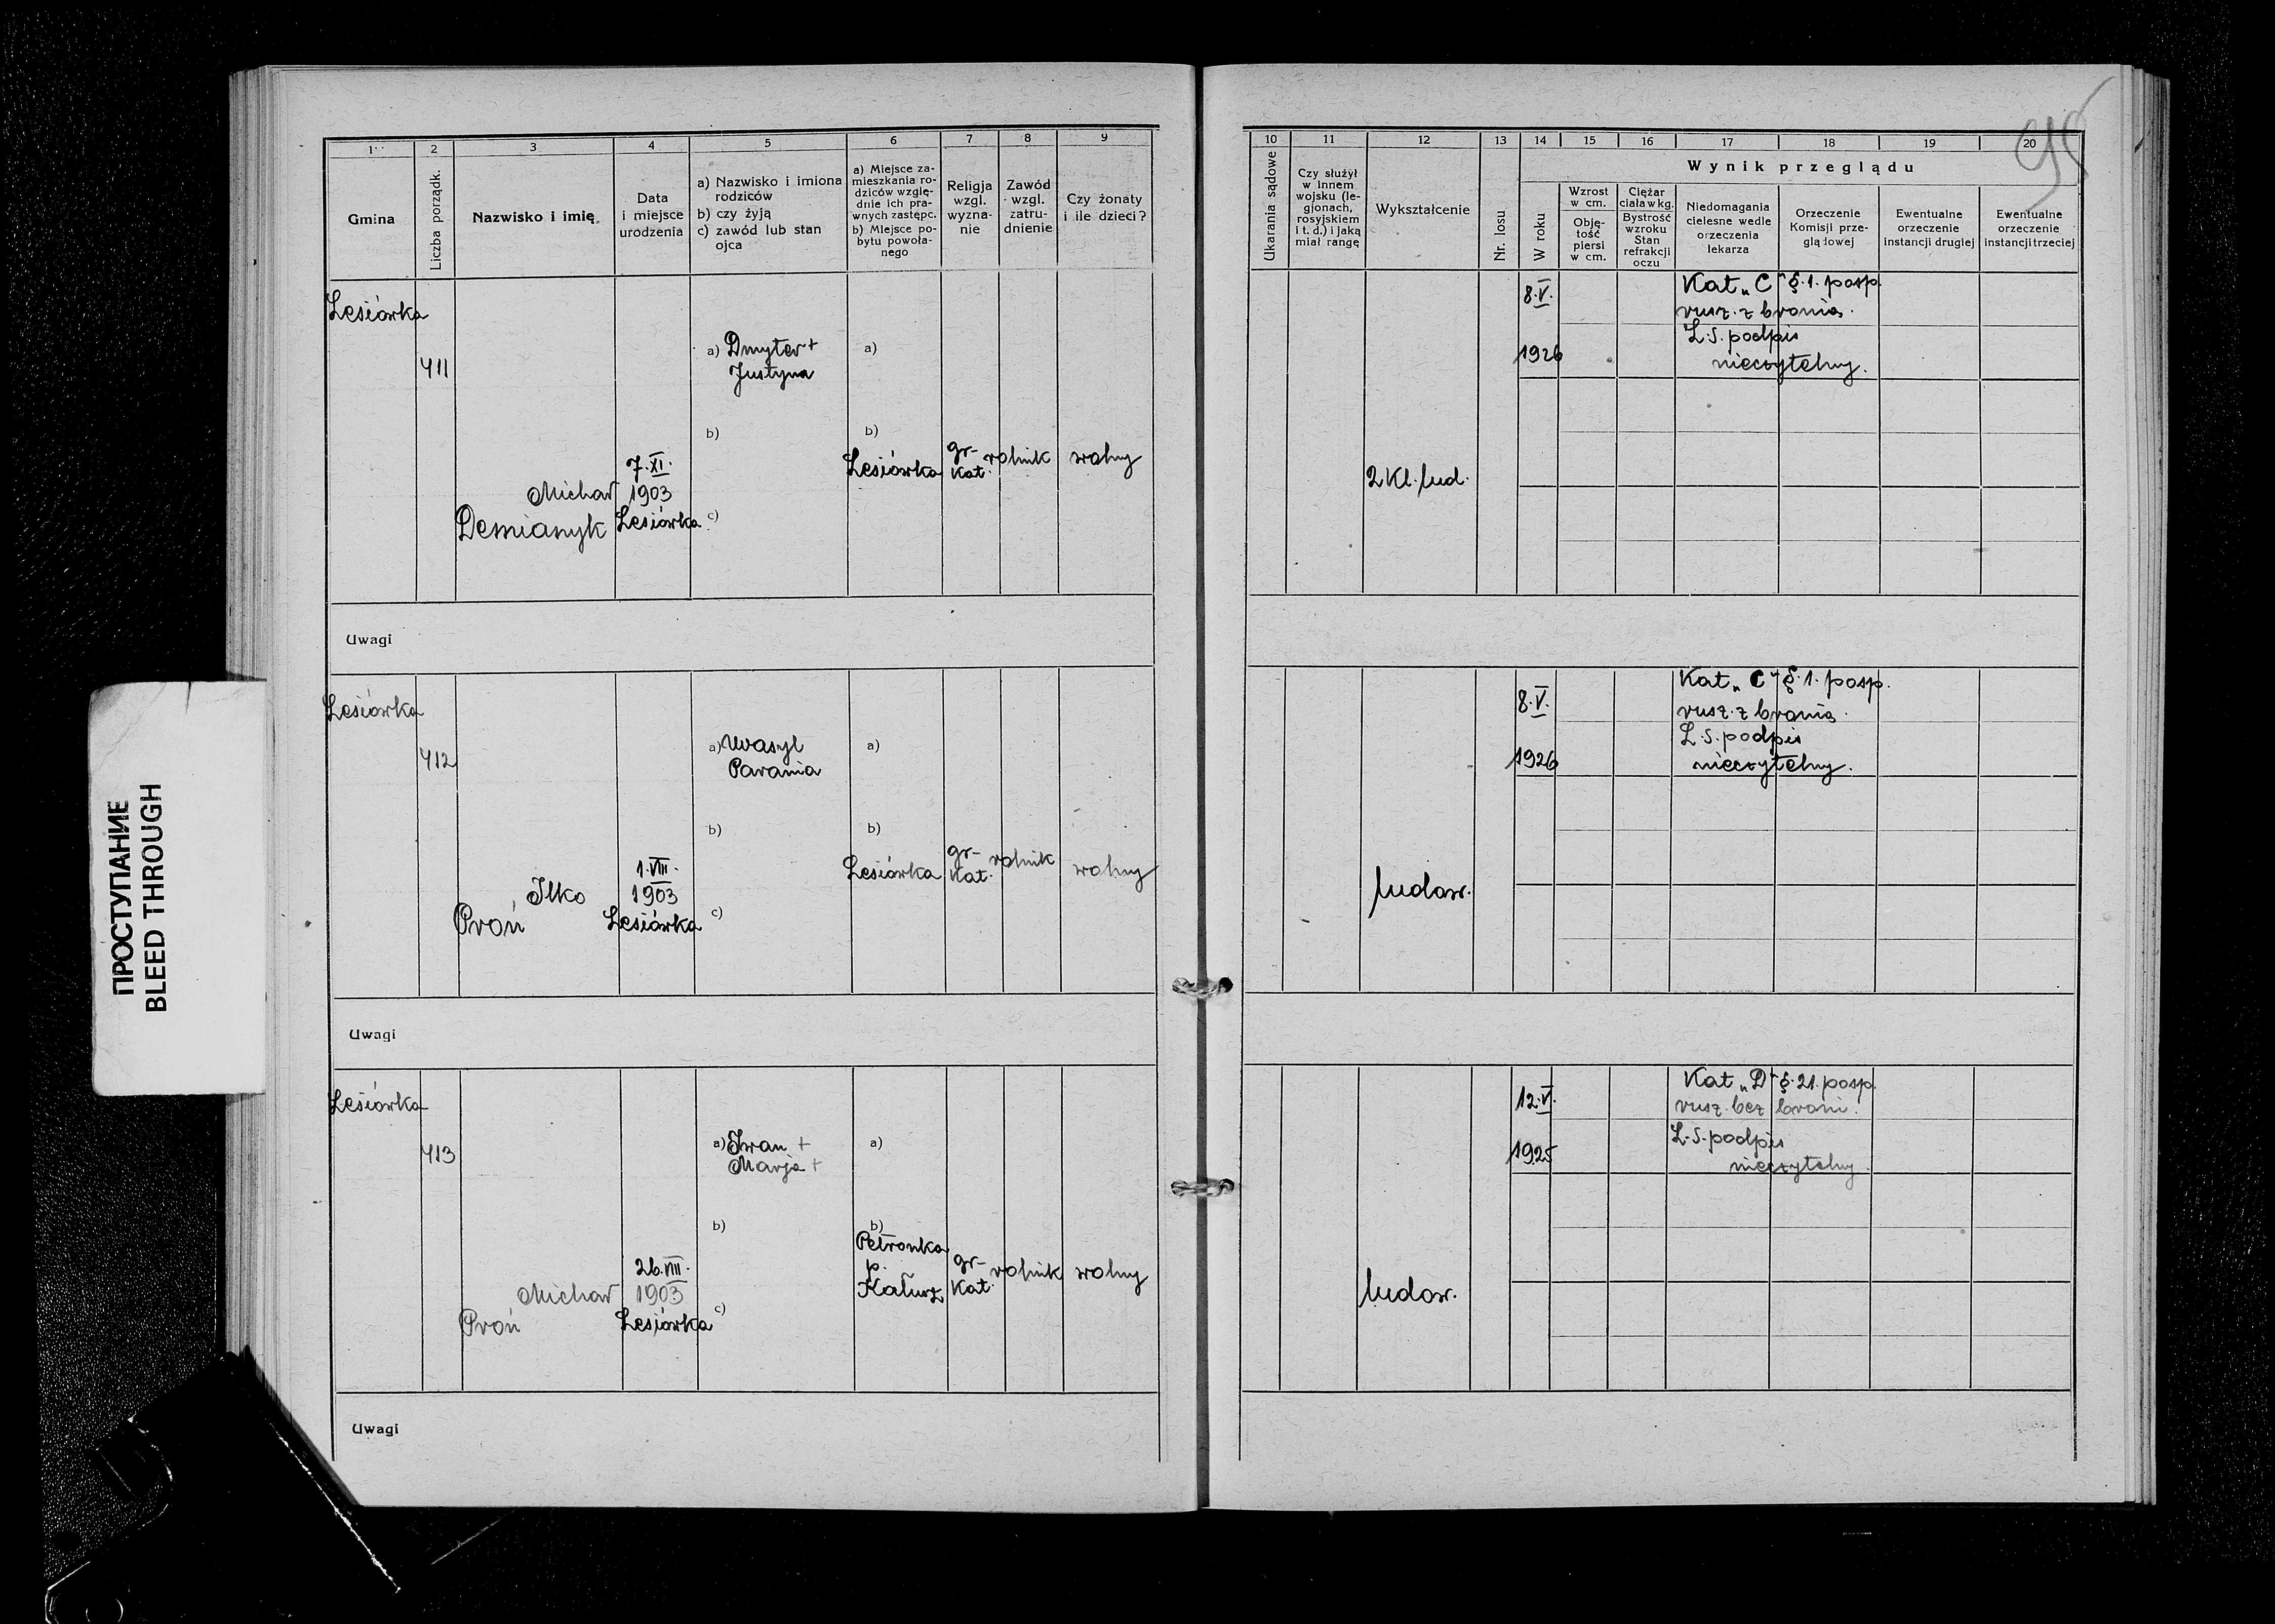 95
1 2 3 4 5 6 7 8 9
Gmina
Liczba porządk.
Nazwisko i imię
Data
i miejsce
urodzenia
a) Nazwisko i imiona
rodziców
b) czy żyją
c) zawód lub stan
ojca
a) Miejsce za-
mieszkania ro-
dziców wzglę-
dnie ich pra-
wnych zastępc.
b) Miejsce po-
bytu powoła-
nego
Religja
wzgl.
wyzna-
nie
Zawód
wzgl.
zatru-
dnienie
Czy żonaty
i ile dzieci?
10 11 12 13 14 15 16 17 18 19 20
Ukarania sądowe
Czy służył
w innem
wojsku (le-
gjonach,
rosyjskiem
i t. d.) i jaką
miał rangę
Wykształcenie
Nr. losu
W roku
Wynik przeglądu
Wzrost
w cm.
Obję-
tość
piersi
w cm.
Ciężar
ciała w kg.
Bystrość
wzroku
Stan
refrakcji
oczu
Niedomagania
cielesne wedle
orzeczenia
lekarza
Orzeczenie
Komisji prze-
glądowej
Ewentualne
orzeczenie
instancji drugiej
Ewentualne
orzeczenie
instancji trzeciej
Lesiówka
411
Michał
Demianyk
7.XI.
1903
Lesiówka
a) Dmyter +
Justyna
b)
c)
a)
b)
Lesiówka
gr-
kat.
rolnik
wolny
2 Kl. lud.
8.V.
1926
Kat „C" §.1. posp.
rusz. z bronią.
L.S. podpis
nieczytelny.
Uwagi
Lesiówka
412
Ilko
Proń
1.VIII.
1903
Lesiówka
a) Wasyl
Parania
b)
c)
a)
b)
Lesiówka
gr-
kat.
rolnik
wolny
ludow.
8.V.
1926
Kat „C" §.1. posp.
rusz. z bronią.
L.S. podpis
nieczytelny.
Uwagi
Lesiówka
413
Michał
Proń
26.VIII.
1903
Lesiówka
a) Iwan +
Marja +
b)
c)
a)
b)
Petranka
p.
Kałusz
gr-
kat.
rolnik
wolny
ludow.
12.V.
1925
Kat „D" §.21. posp.
rusz. bez broni.
L.S. podpis
nieczytelny.
Uwagi
ПРОСТУПАНИЕ
BLEED THROUGH